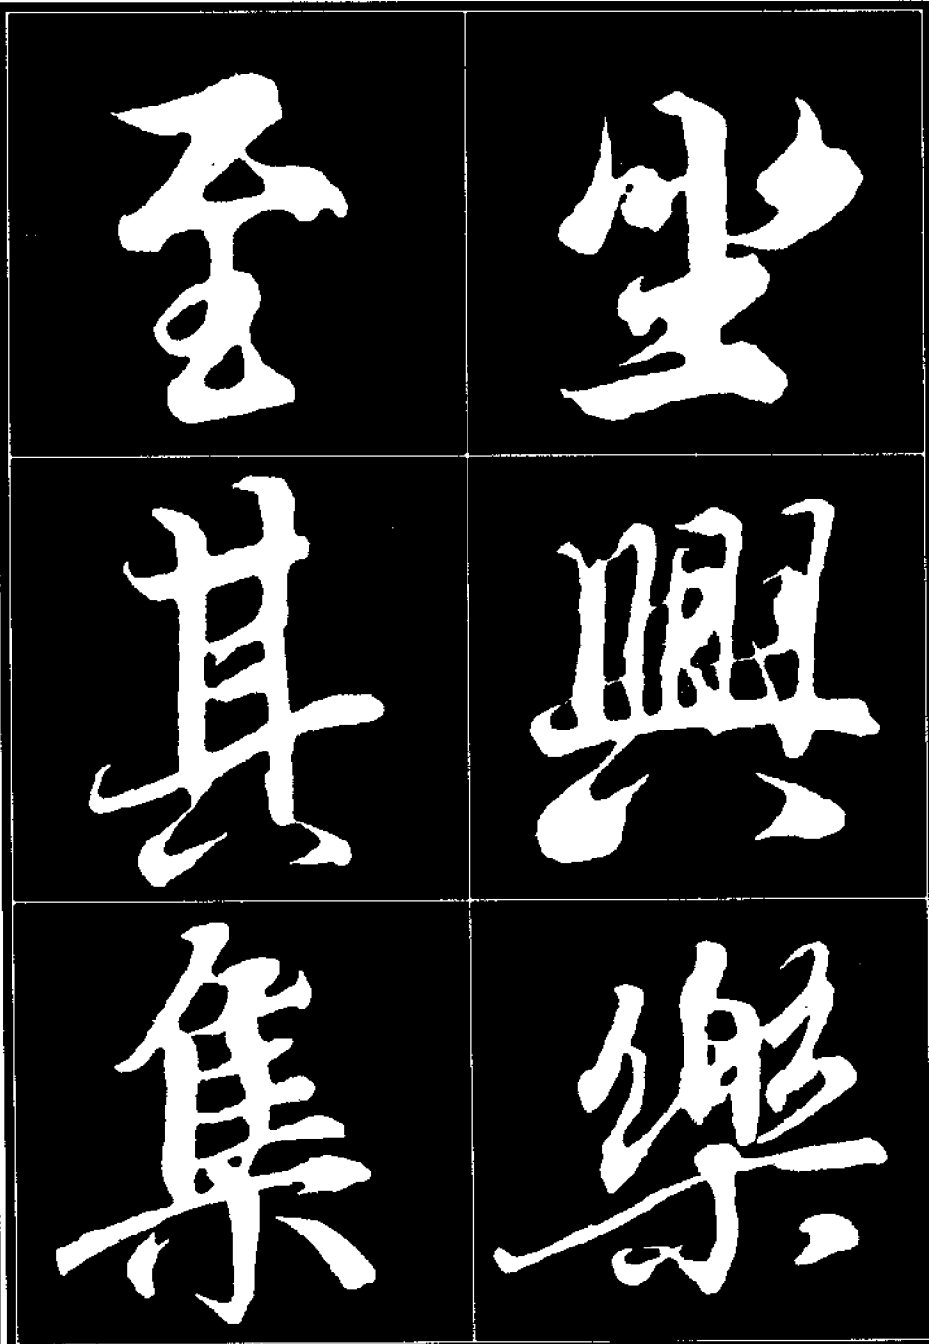 坐興樂
至其集